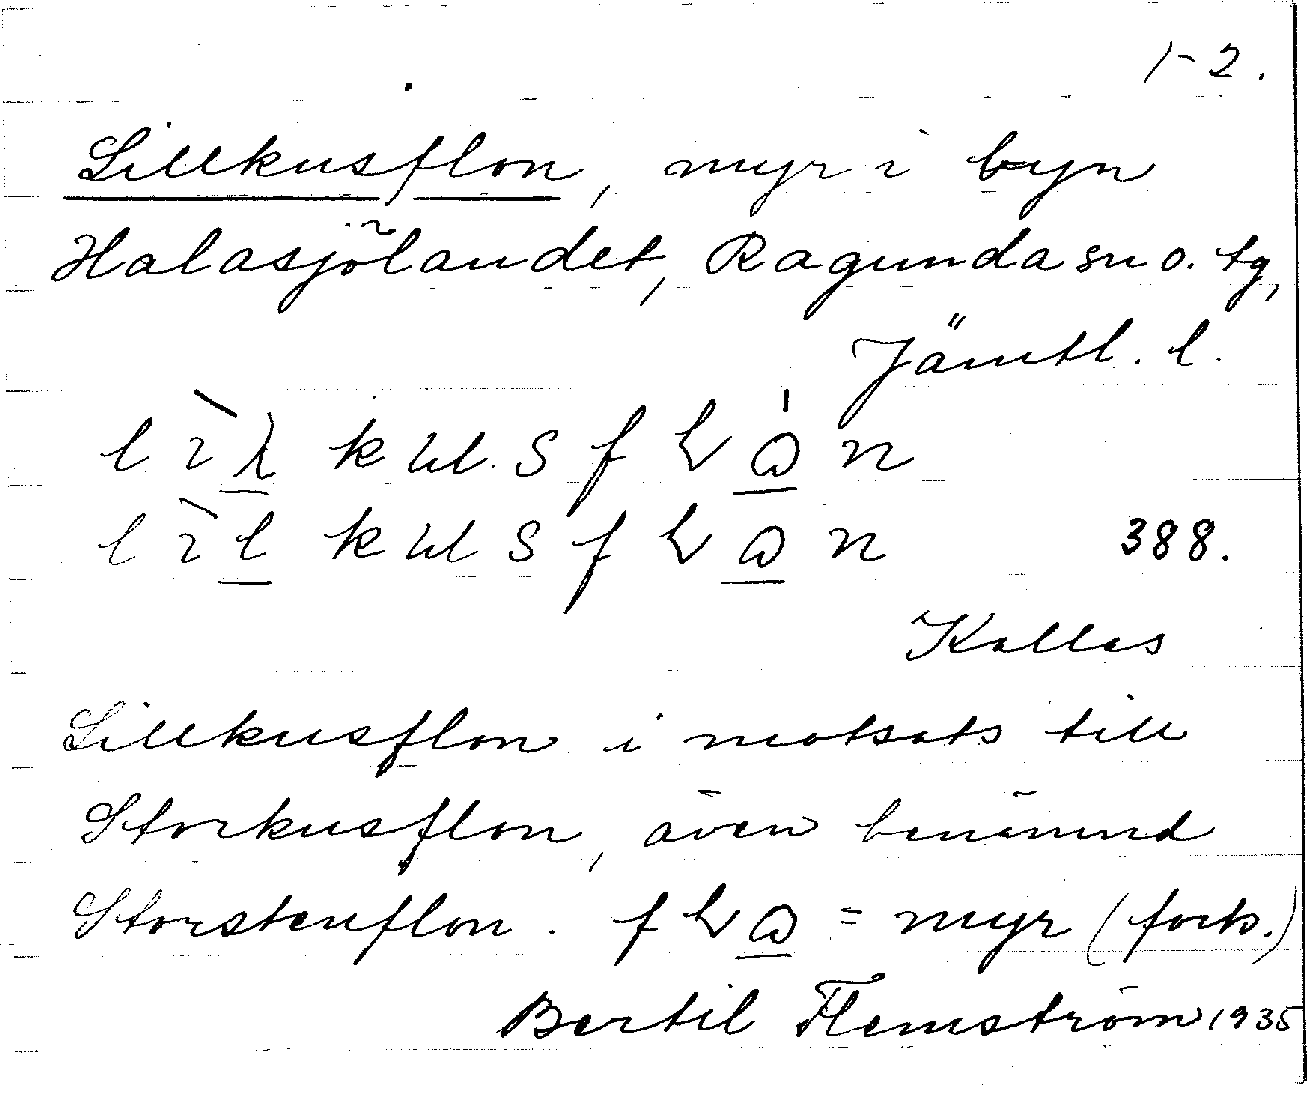 1-2.
Lillkusflon, myr i byn
Halasjölandet, Ragunda sn o. tg,
Jämtl. l.
388.
Kallas
Lillkusflon i motsats till
Storkusflon, även benämnd
Storstenflon. = myr (fork.)
Bertil Flemström 1935